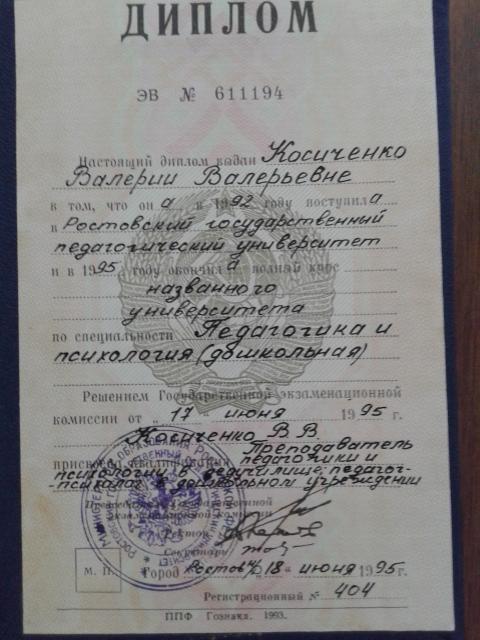 ДИПЛОМ
ЭВ № 611194
Настоящий диплом выдан Косиченко
Валерии Валерьевне
в том, что она в 1992 году поступила
в Ростовский государственный
педагогический университет
и в 1995 году окончила полный курс
названного
университета
по специальности Педагогика и
психология (дошкольная)
Решением Государственной экзаменационной
комиссии от „17 июня 1995 г.
Косиченко В. В.
присвоена квалификация Преподаватель
педагогики и
психологии в педучилище; педагог-
-психолог в дошкольном учреждении
Председатель Государственной
экзаменационной комиссии
Ректор
Секретарь
М. П. Город Ростов н/Д 18 “ июня 1995 г.
Регистрационный № 404
ППФ Гознака. 1993.